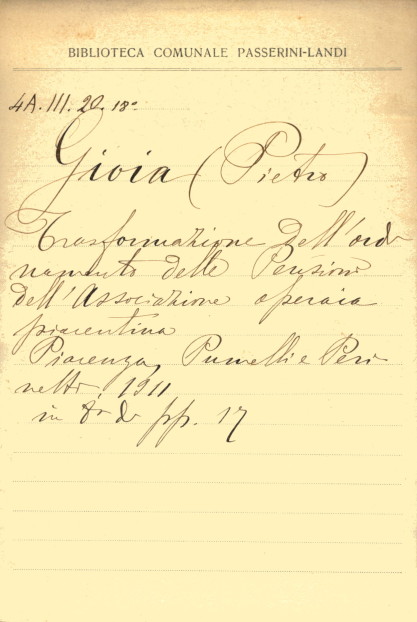 BIBLIOTECA COMUNALE PASSERINI-LANDI
4A. III. 20. 18º
Gioia (Pietro)
Trasformazione dell'ordi
namento delle Pensioni
dell'Associazione operaia
piacentina
Piacenza, Pumelli e Peri
netti, 1911
in 8º pp. 17